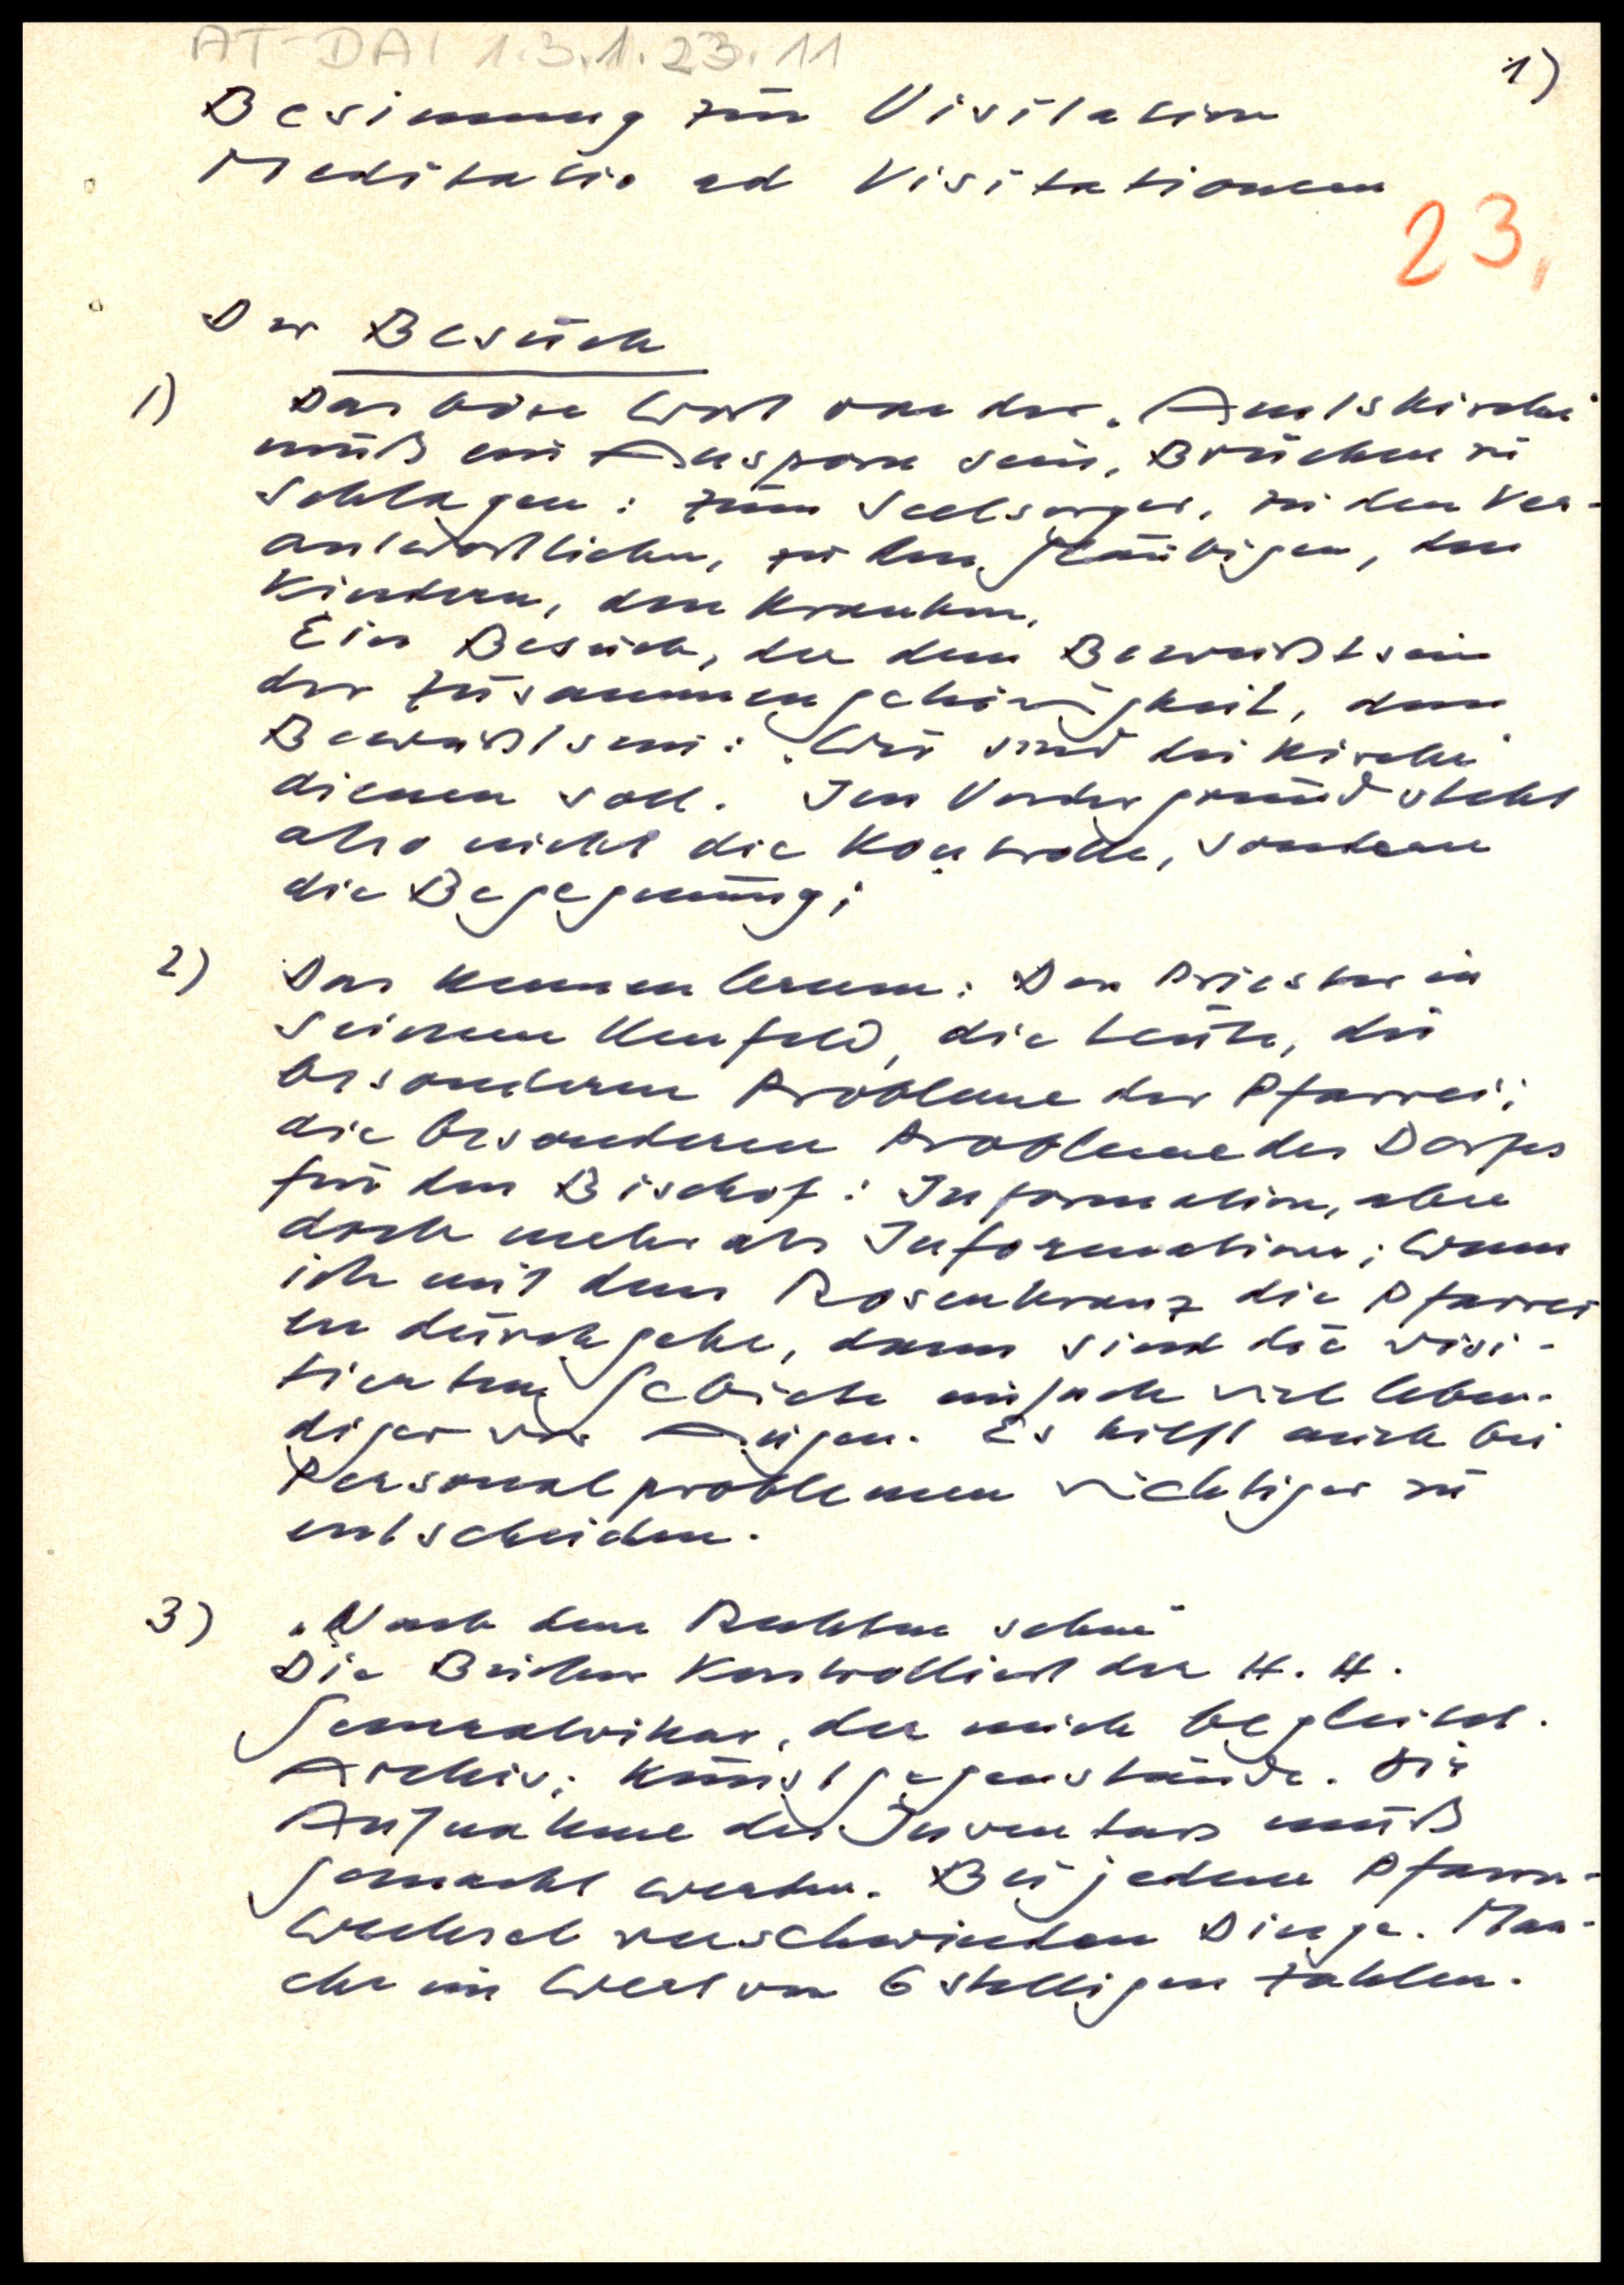 AT-DAI 1.3.1.23.11
1)
Besinnung zur Visitation
Meditatio ad Visitationem
23,
Der Besuch
1) Das böse Wort von der „Amtskirche"
muß ein Ansporn sein, Brücken zu
schlagen: zum Seelsorger, zu den Ver-
antwortlichen, zu den Gläubigen, den
Kindern, den Kranken.
Ein Besuch, der dem Bewußtsein
der Zusammengehörigkeit, dem
Bewußtsein: „Wir sind die Kirche"
dienen soll. Im Vordergrund steht
also nicht die Kontrolle, sondern
die Begegnung;
2) Das Kennenlernen: Den Priester in
seinem Umfeld, die Leute, die
besonderen Probleme der Pfarrei;
die besonderen Probleme des Dorfes
für den Bischof: Information, aber
doch mehr als Information; wenn
ich mit dem Rosenkranz die Pfarrei
en durchgehe, dann sind die visi-
tierten Gebiete einfach viel leben-
diger vor Augen. Es hilft mich bei
Personalproblemen richtiger zu
entscheiden.
3) „Nach dem Rechten sehen"
Die Bücher kontrolliert der H. H.
Generalvikar, der mich begleitet.
Archiv; Kunstgegenstände. Die
Aufnahme des Inventars muß
gemacht werden. Bei jedem Pfarr-
wechsel verschwinden Dinge. Man-
che im Wert von 6 stelligen Zahlen.